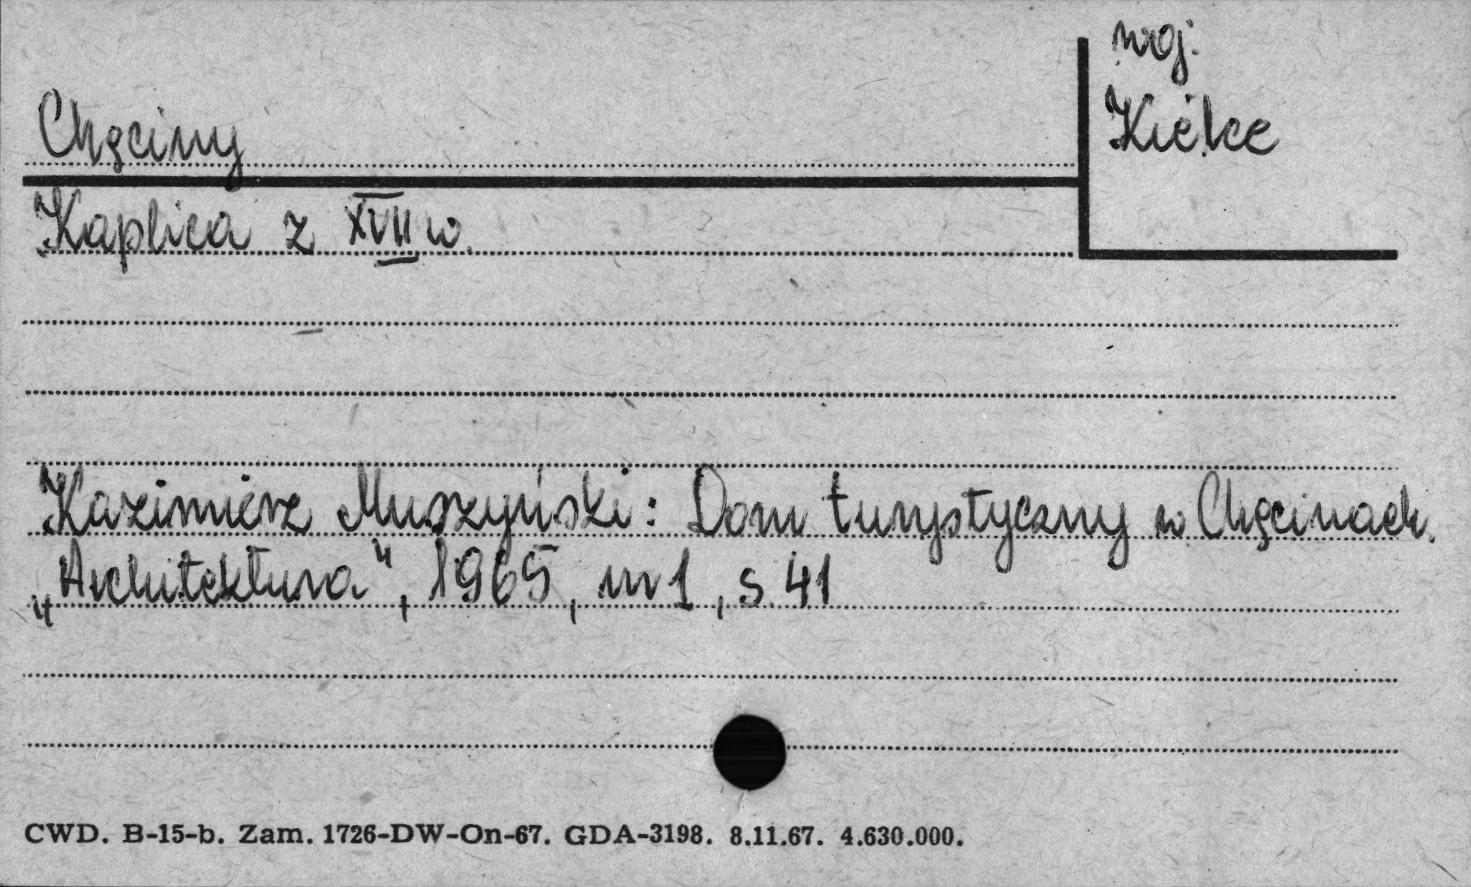 woj.
Kielce
Chęciny
Kaplica z XVII w.
Kazimierz Muszyński: Dom turystyczny w Chęcinach.
„Architektura", 1965, nr 1, s. 41
CWD. B-15-b. Zam. 1726-DW-On-67. GDA-3198. 8.11.67. 4.630.000.